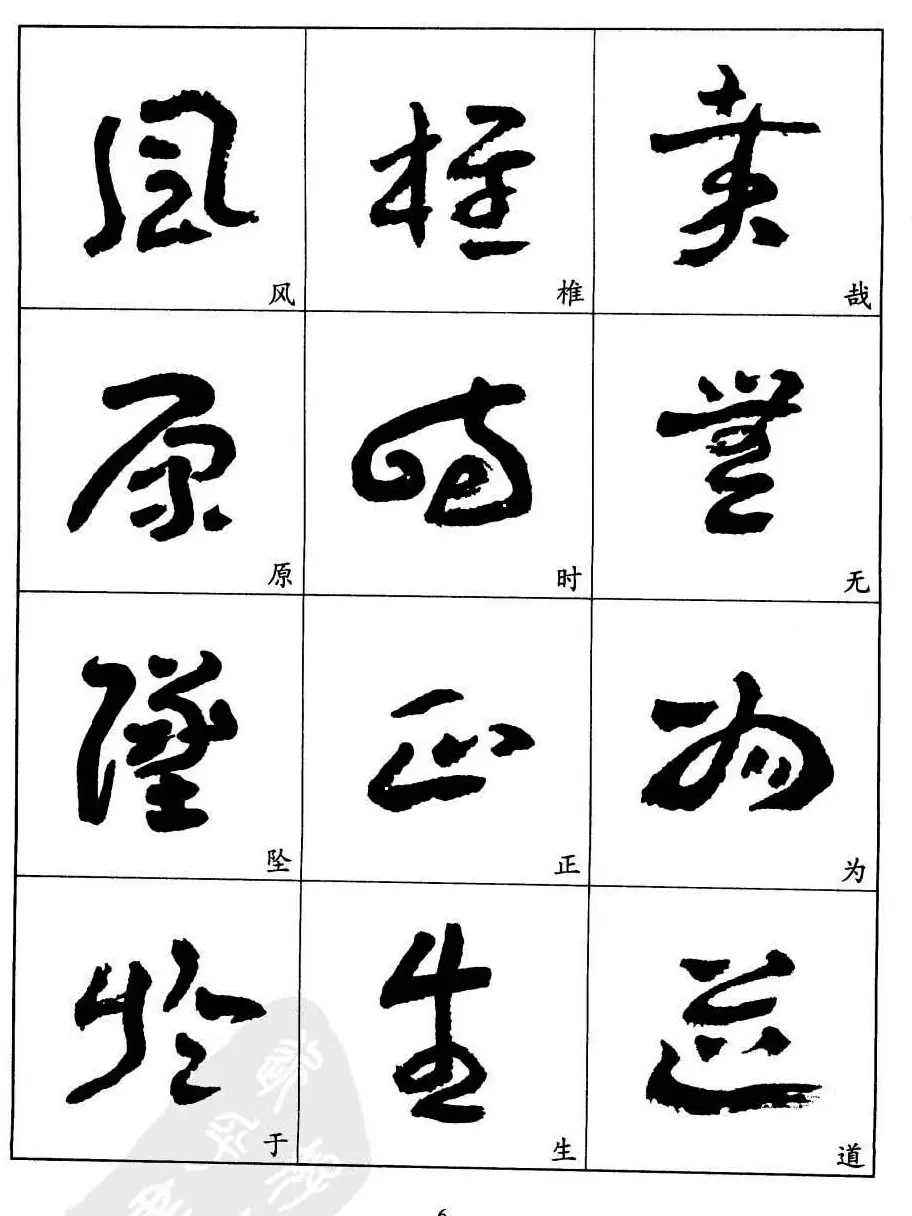 哉
哉
無
无
為
为
道
道
椎
椎
時
时
正
正
生
生
風
风
原
原
墜
坠
於
于
6